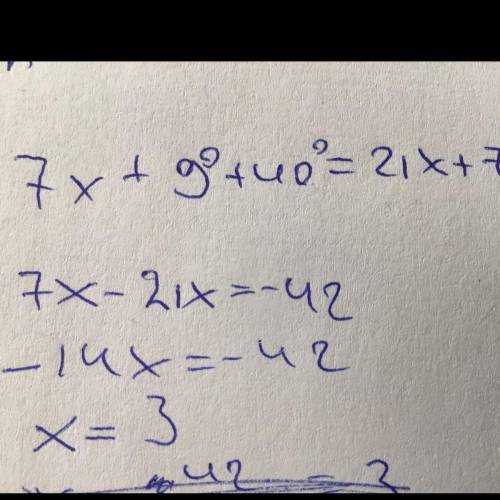 7x + 9° + 40° = 21x + 7
7x - 21x = -42
-14x = -42
x = 3
42 - 3